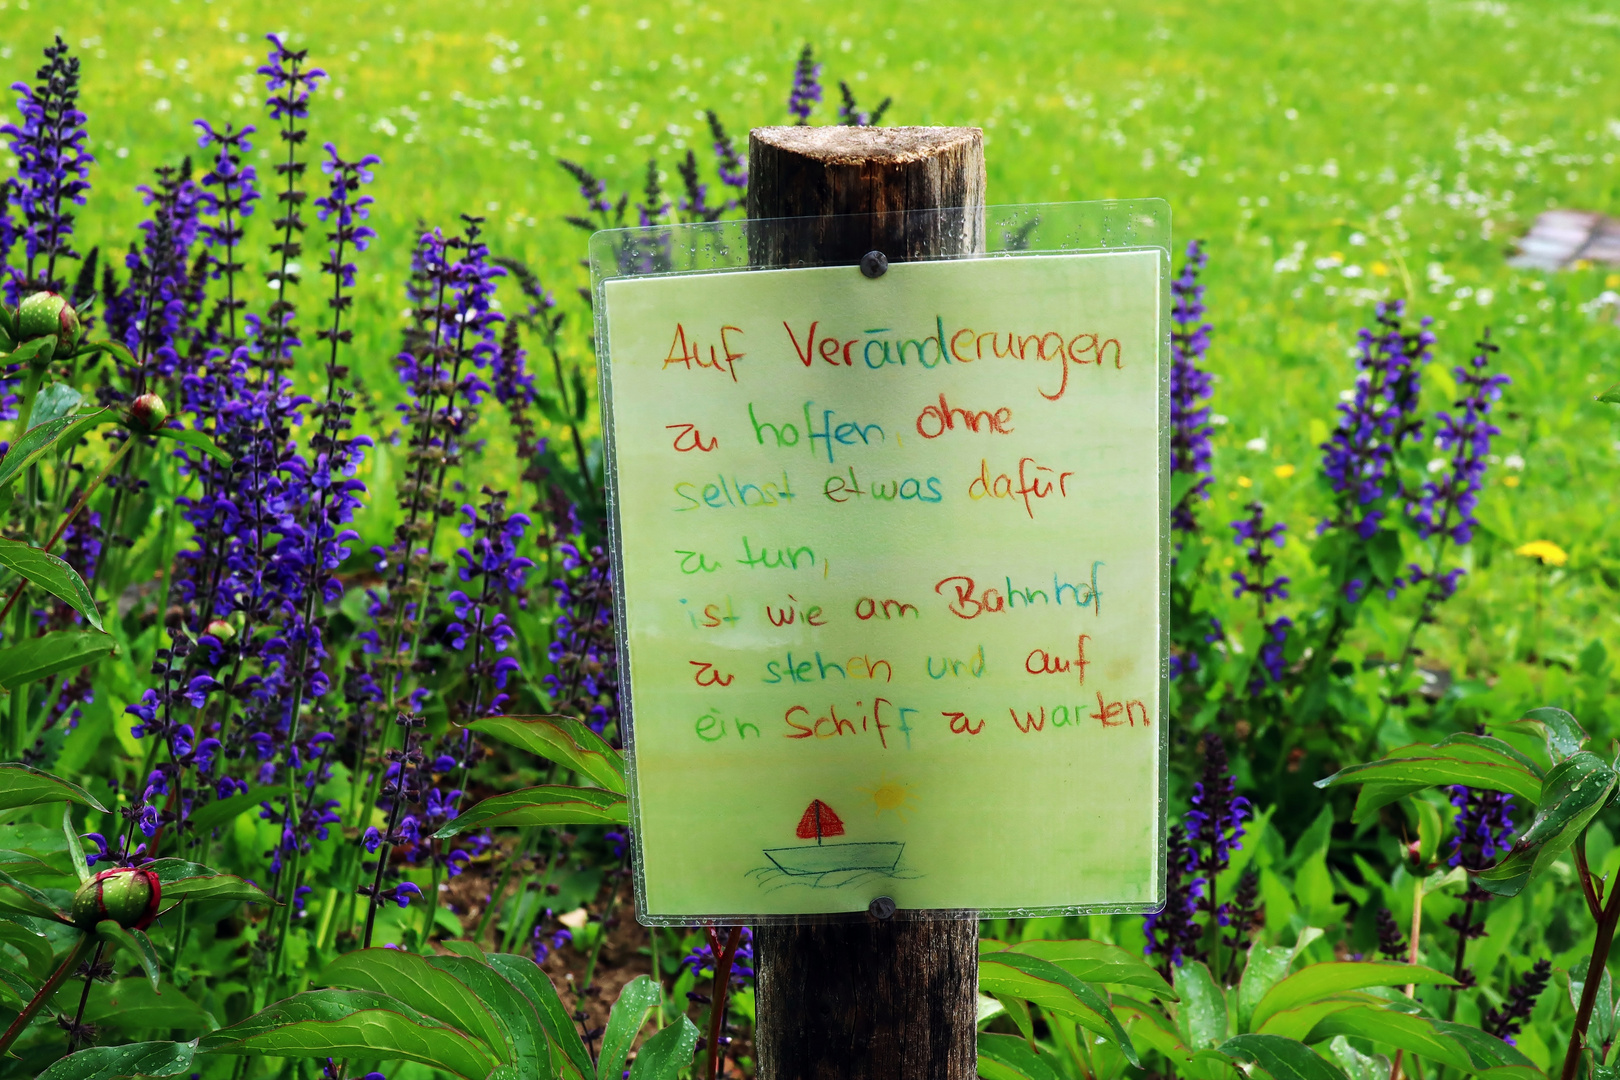 Auf Veränderungen
zu hoffen, ohne
selbst etwas dafür
zu tun,
ist wie am Bahnhof
zu stehen und auf
ein Schiff zu warten.